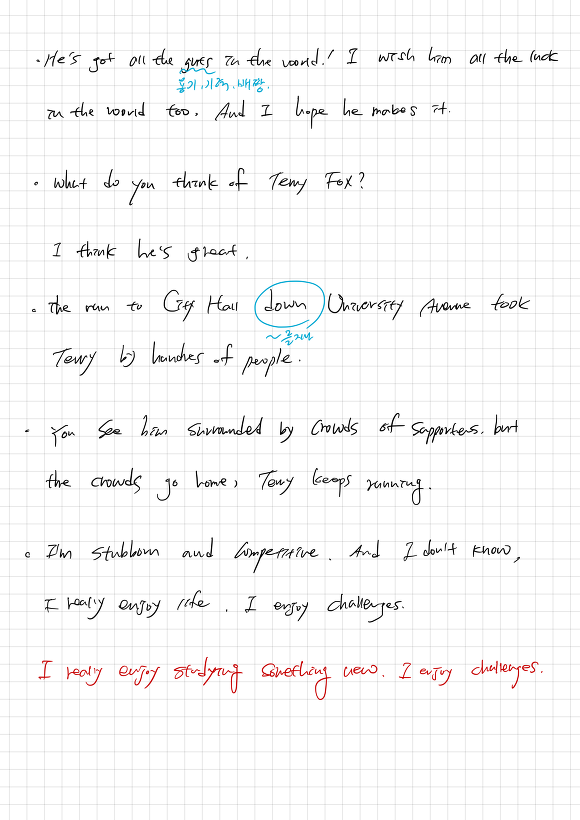 · He's got all the guts in the world! I wish him all the luck
용기, 기력, 배짱.
in the world too. And I hope he makes it.
· What do you think of Terry Fox?
I think he's great.
· The run to City Hall down University Avenue took
~를 지나
Terry by bunches of people.
· You see him surrounded by crowds of supporters. but
the crowds go home, Terry keeps running.
· I'm stubborn and competitive. And I don't know,
I really enjoy life. I enjoy challenges.
I really enjoy studying something new. I enjoy challenges.